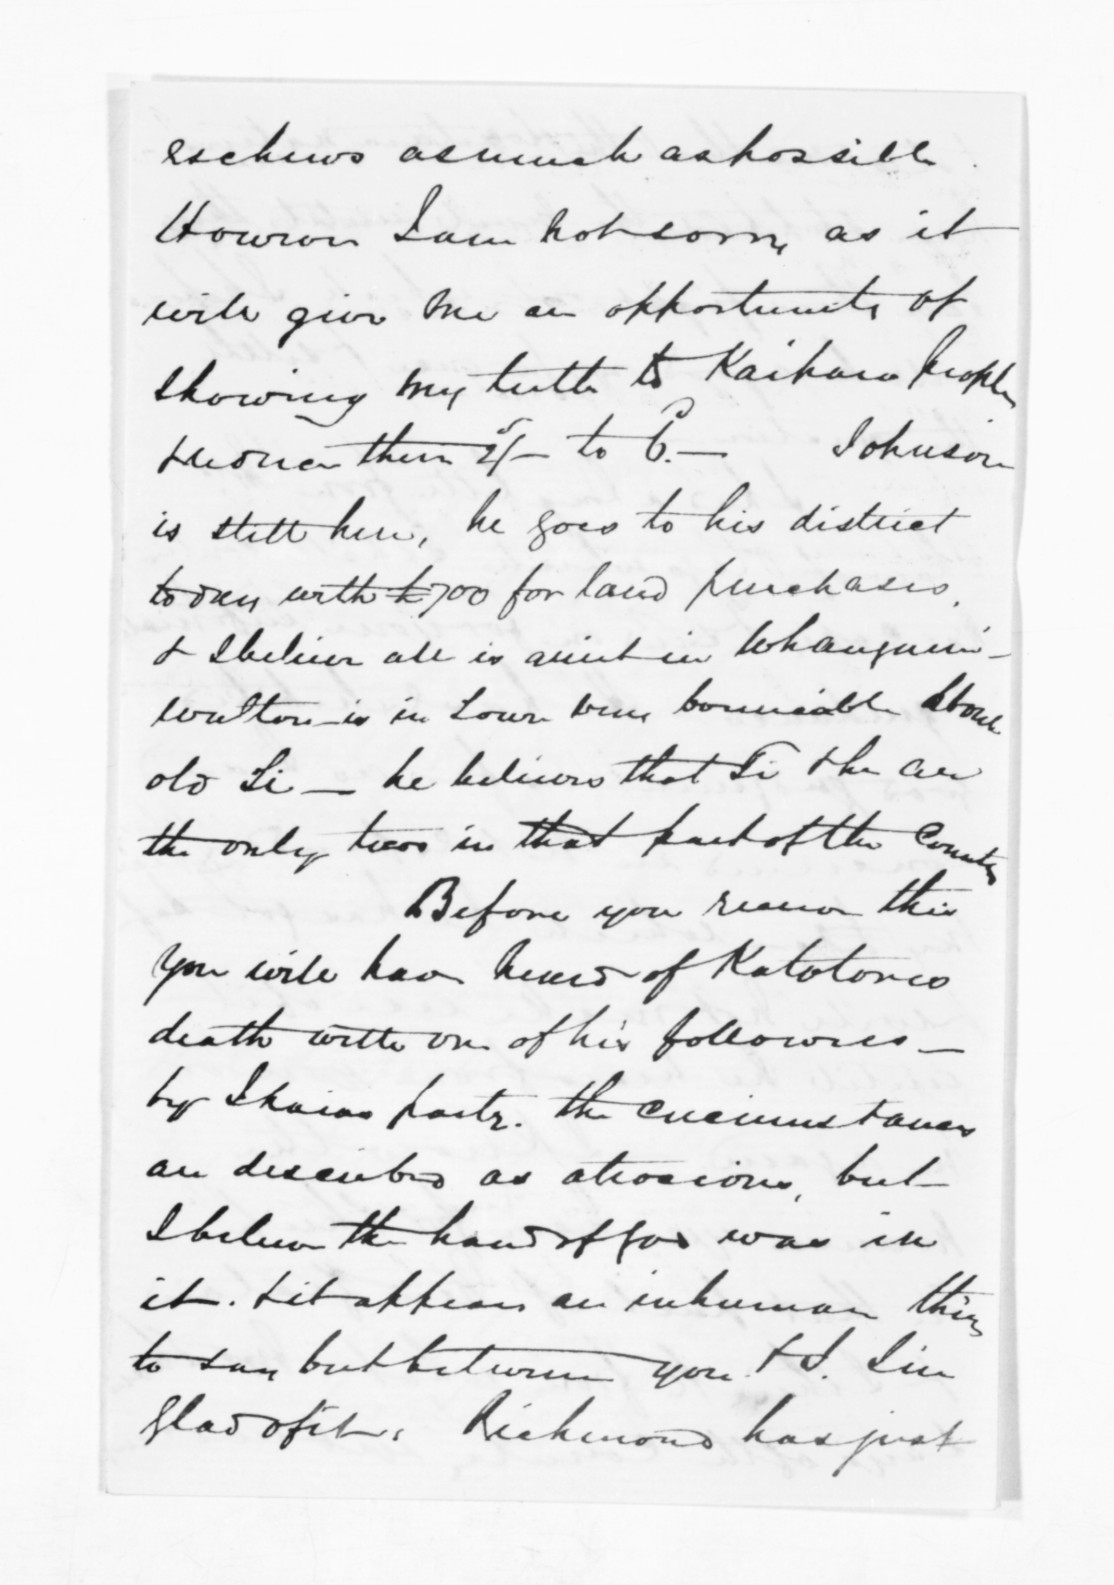 eschews as much as possible.
However I am not sorry, as it
will give me an opportunity of
showing my teeth to Kaihara people
& reduce them 2/- to 6.- Johnson
is still here, he goes to his district
today with £700 for land purchases,
& I believe all is quiet in Whangarei -
Walton is in town very
old Ti - he believes that Ti & he are
the only two in that part of the Country
Before you receive this
you will have heard of Katotores
death with one of his followers -
by Ihaias party. the circumstances
are described as atrocious, but
I believe the hand of God was in
it. & it appears an inhuman thing
to say but between you & I. I'm
glad of it. Richmond has just